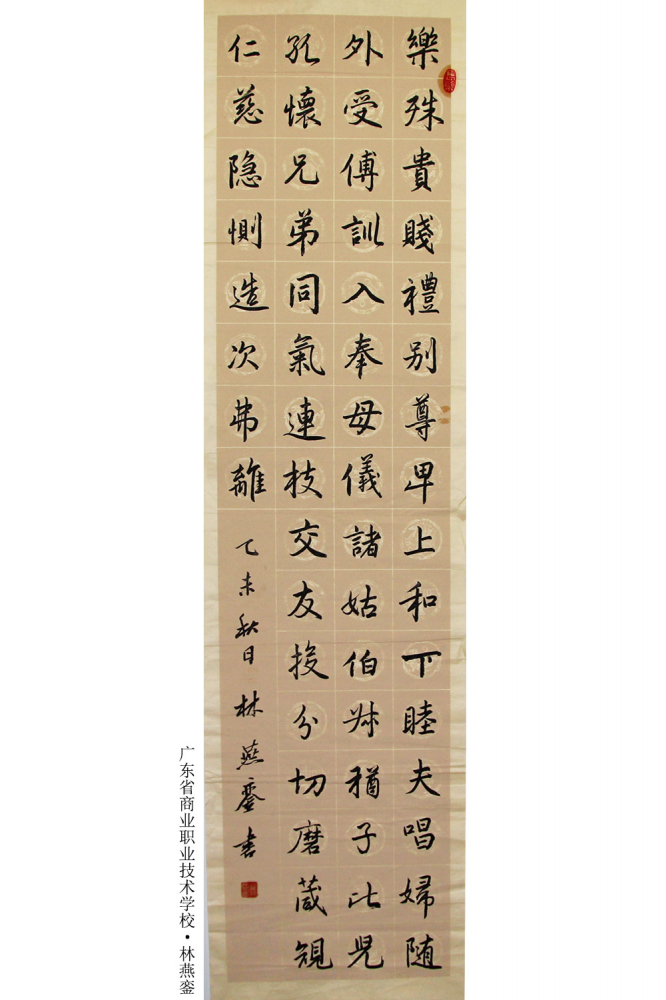 樂殊貴賤禮别尊卑上和下睦夫唱婦随
外受傅訓入奉母儀諸姑伯叔猶子比兒
孔懷兄弟同氣連枝交友投分切磨箴規
仁慈隐惻造次弗離
乙未秋日林燕銮書
广东省商业职业技术学校·林燕銮